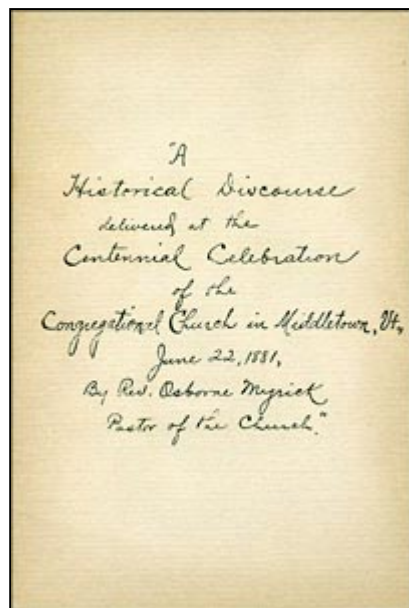 "A
Historical Discourse
delivered at the
Centennial Celebration
of the
Congregational Church in Middletown, Vt.,
June 22, 1881,
By Rev. Osborne Myrick
Pastor of the Church."